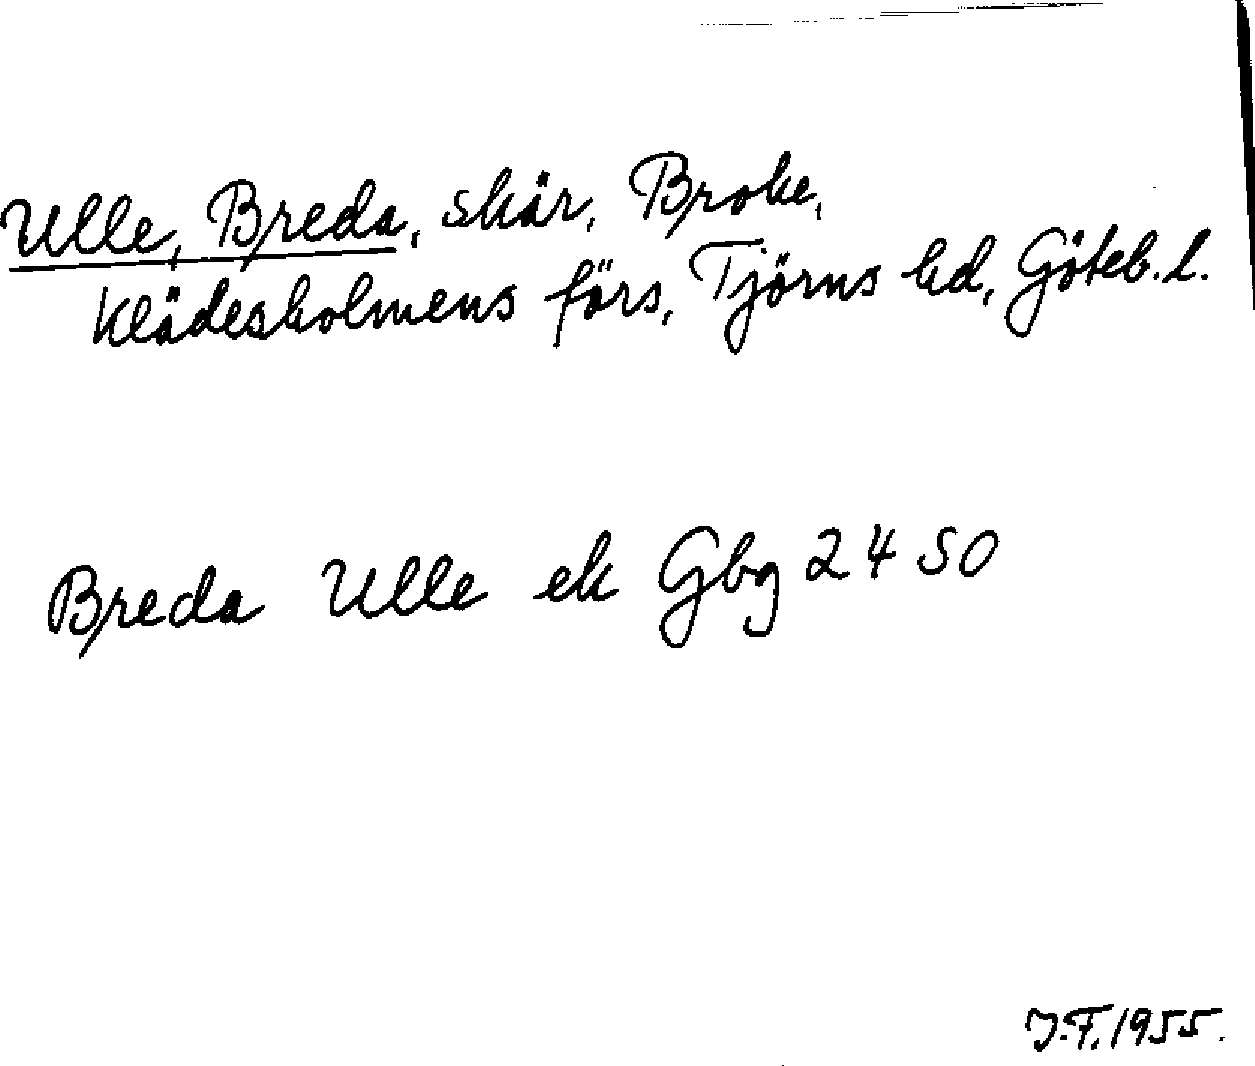 Ulle, Breda, skär, Broke,
Klädesholmens förs, Tjörns hd, Göteb. l.
Breda Ulle ek Gbg 2450
J.F. 1955.